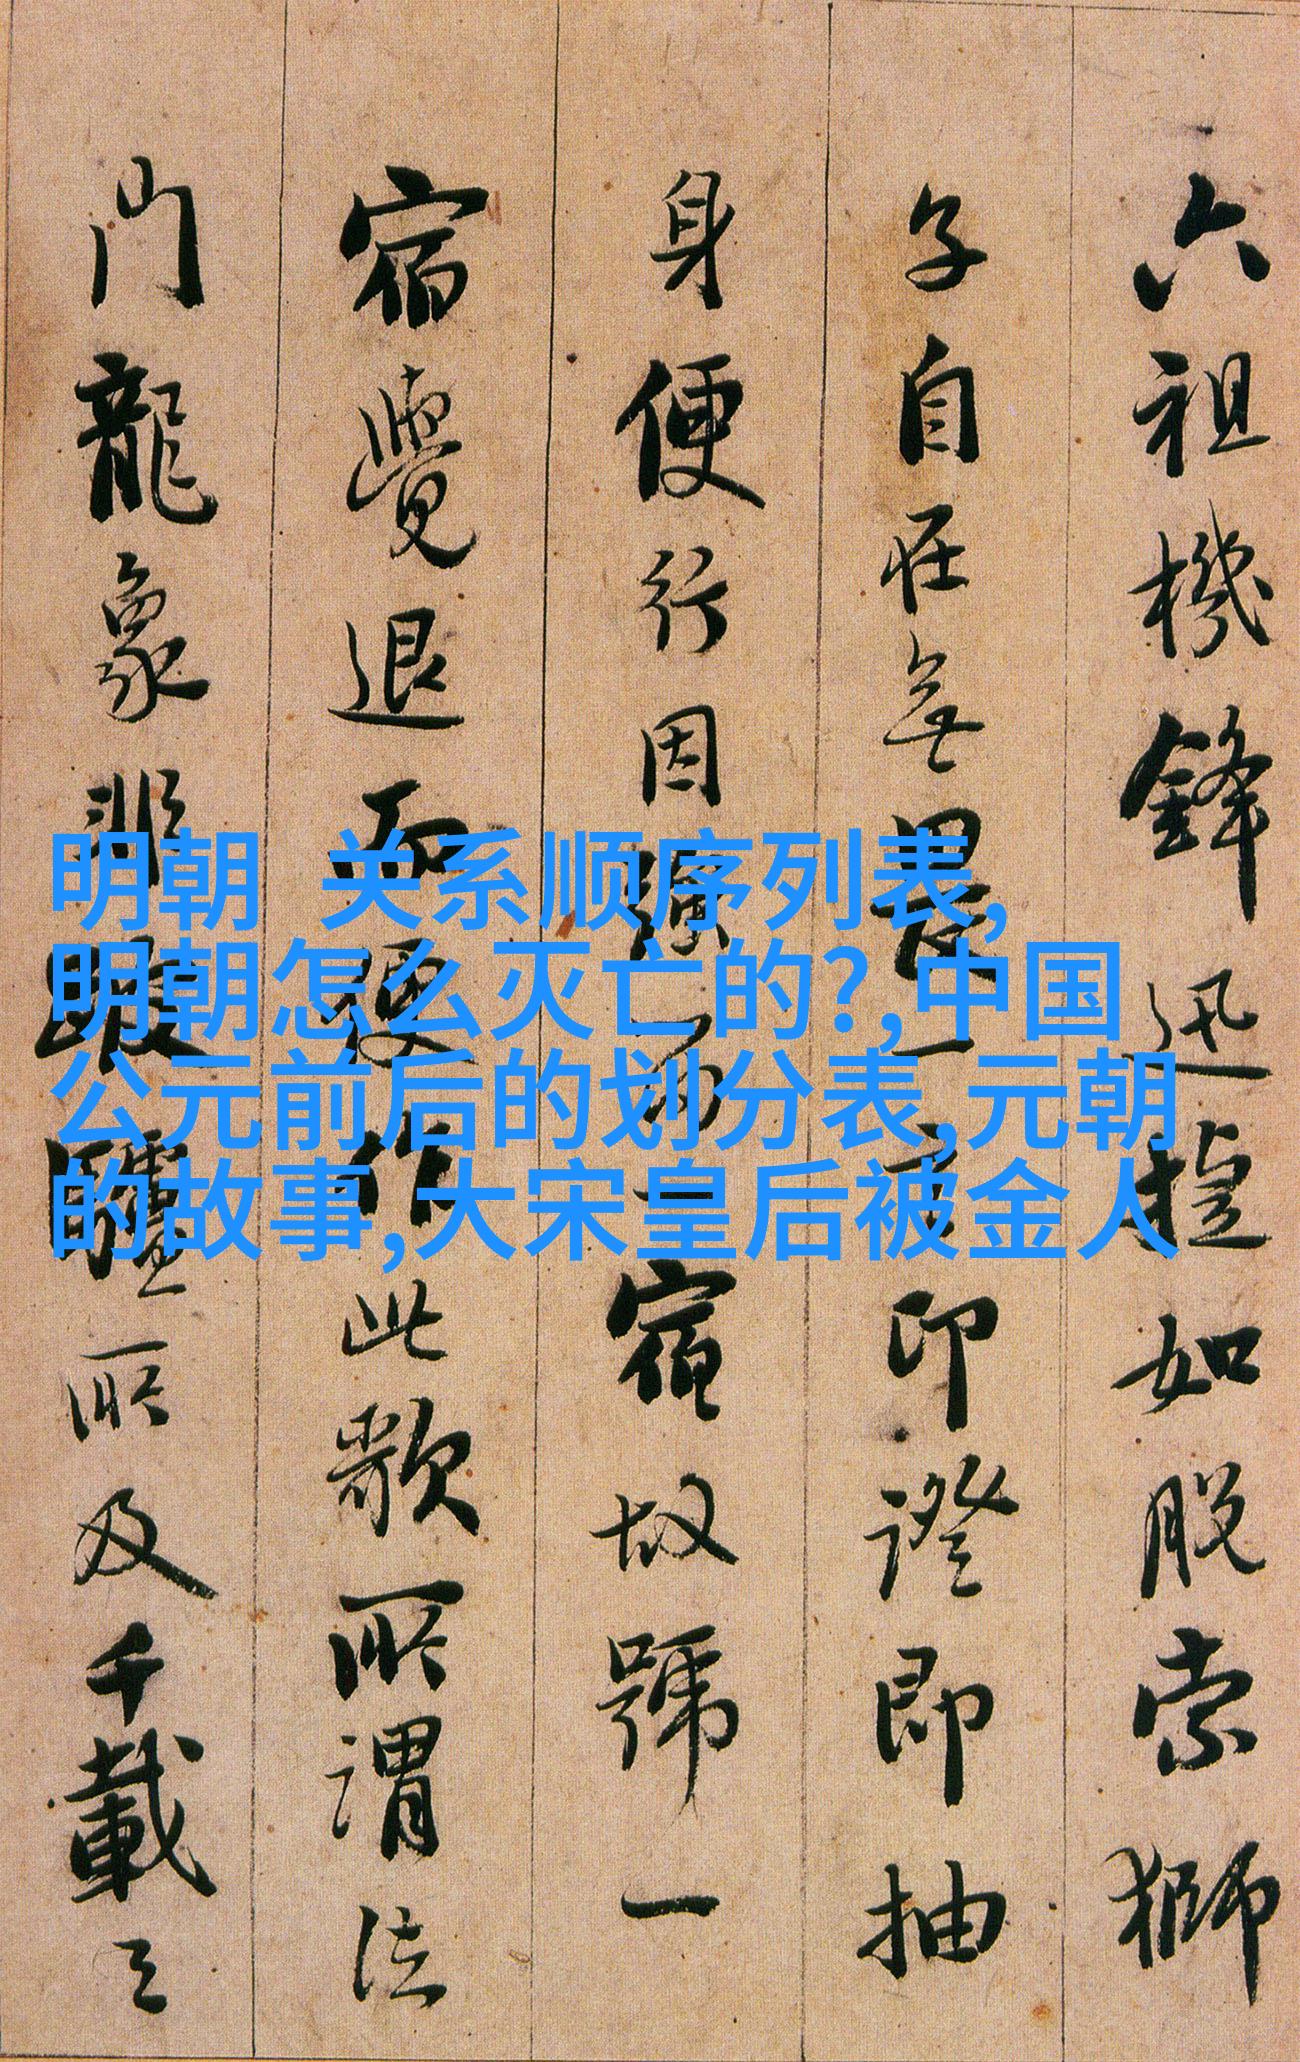 六祖機鋒迅捷如脫索獅
子自在無畏一印證即抽
身便行因強一宿故號一
宿覺退而便作此歌所謂法
門龍象非跛驢所及千載之
明朝 关系顺序列表,
明朝怎么灭亡的?,中国
公元前后的划分表,元朝
的故事,大宋皇后被金人